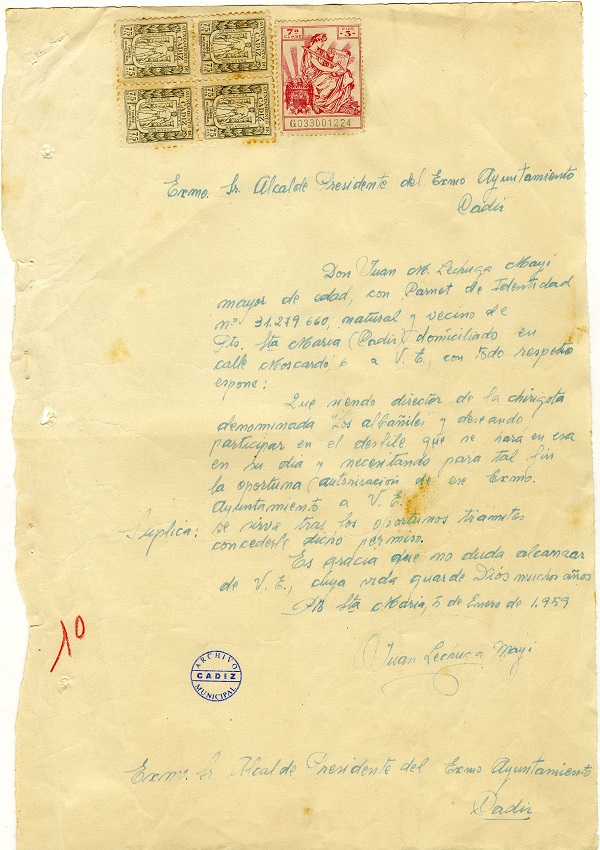 7ª CLASE
PTAS 3
G033001224
CADIZ
CADIZ
CADIZ
CADIZ
Exmo. Sr. Alcalde Presidente del Exmo Ayuntamiento
Cadiz
Don Juan M. Lechuga Mayi
mayor de edad, con Carnet de Identidad
nº 31.279.660, natural y vecino de
Pto. Sta Maria (Cadiz) domiciliado en
calle Moscardó, 6 a V. E, con todo respeto
espone:
Que siendo director de la chirigota
denominada "Los albañiles" y deseando
participar en el desfile que se hará en esa
en su dia y necesitando para tal fin
la oportuna autorizacion de ese Exmo.
Ayuntamiento a V. E.
Suplica: se sirva tras los oportunos tramites
concederle dicho permiso.
Es gracia que no duda alcanzar
de V. E., cuya vida guarde Diós muchos años
Pto Sta Maria, 5 de Enero de 1.959
Juan Lechuga Mayi
10
ARCHIVO
CADIZ
MUNICIPAL
Exmo. Sr Alcalde Presidente del Exmo Ayuntamiento
Cadiz